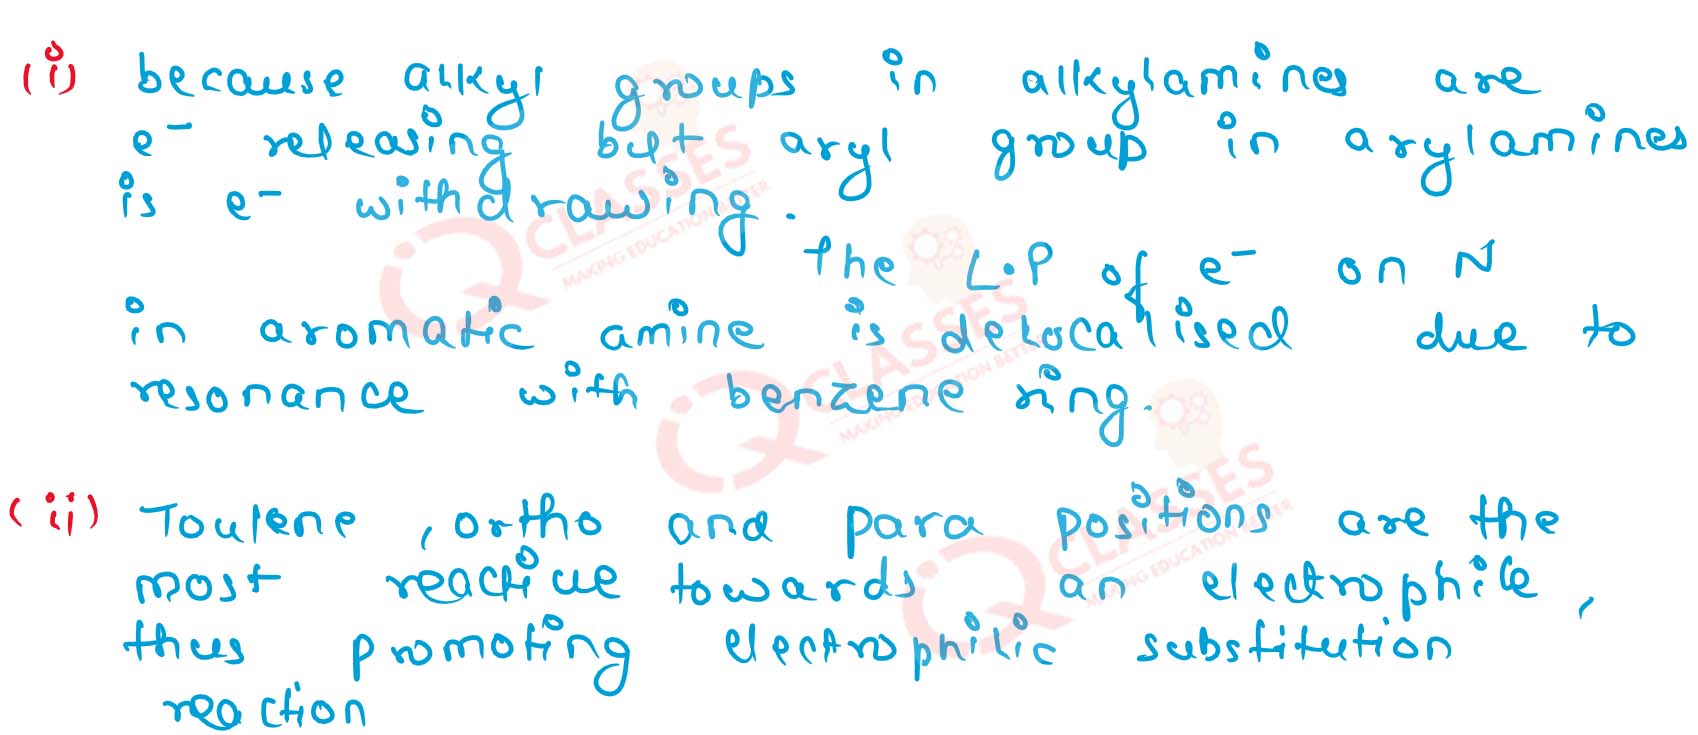 (i) because alkyl groups in alkylamines are
e⁻ releasing but aryl group in arylamines
is e⁻ withdrawing.
The L.P of e⁻ on N
in aromatic amine is delocalised due to
resonance with benzene ring.
(ii) Toulene, ortho and para positions are the
most reactive towards an electrophile,
thus promoting electrophilic substitution
reaction
iQ CLASSES
MAKING EDUCATION BETTER
iQ CLASSES
MAKING EDUCATION BETTER
iQ CLASSES
MAKING EDUCATION BETTER